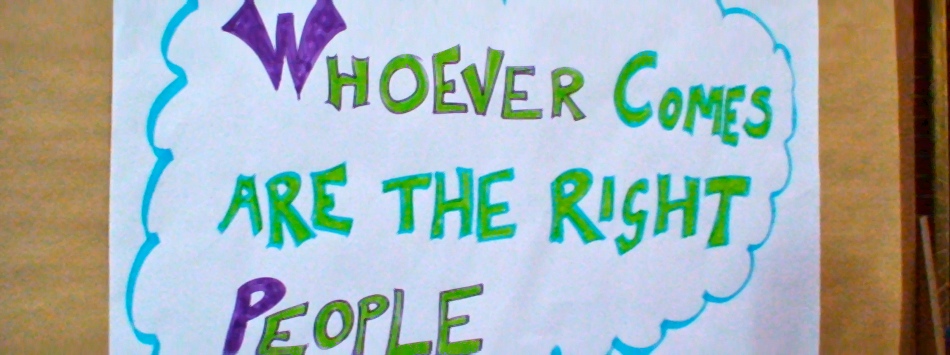 WHOEVER COMES
ARE THE RIGHT
PEOPLE